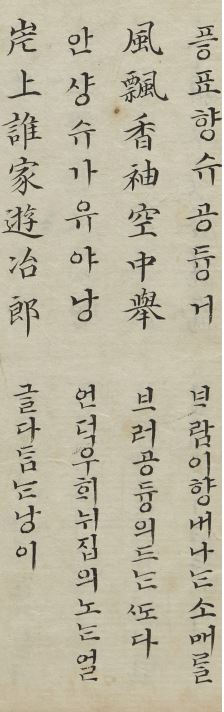 픙표향슈공듕거
風飄香袖空中擧
안샹슈가유야낭
岸上誰家遊冶郎
ᄇᆞ람이향내나ᄂᆞᆫ소매ᄅᆞᆯ
브러공듕의드ᄂᆞᆫᄯᅩ다
언덕우희뉘집의노ᄂᆞᆫ얼
글다듬ᄂᆞᆫ낭이